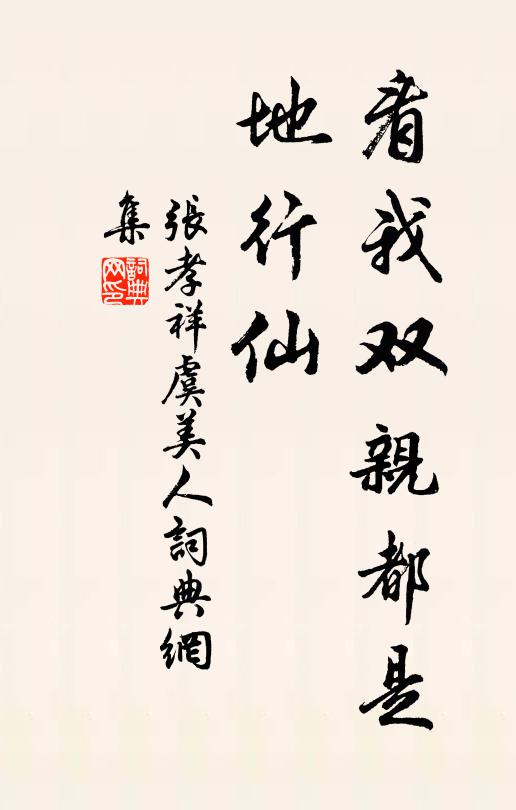 看我双親都是
地行仙
張孝祥虞美人詞典網
集
詞典
网印